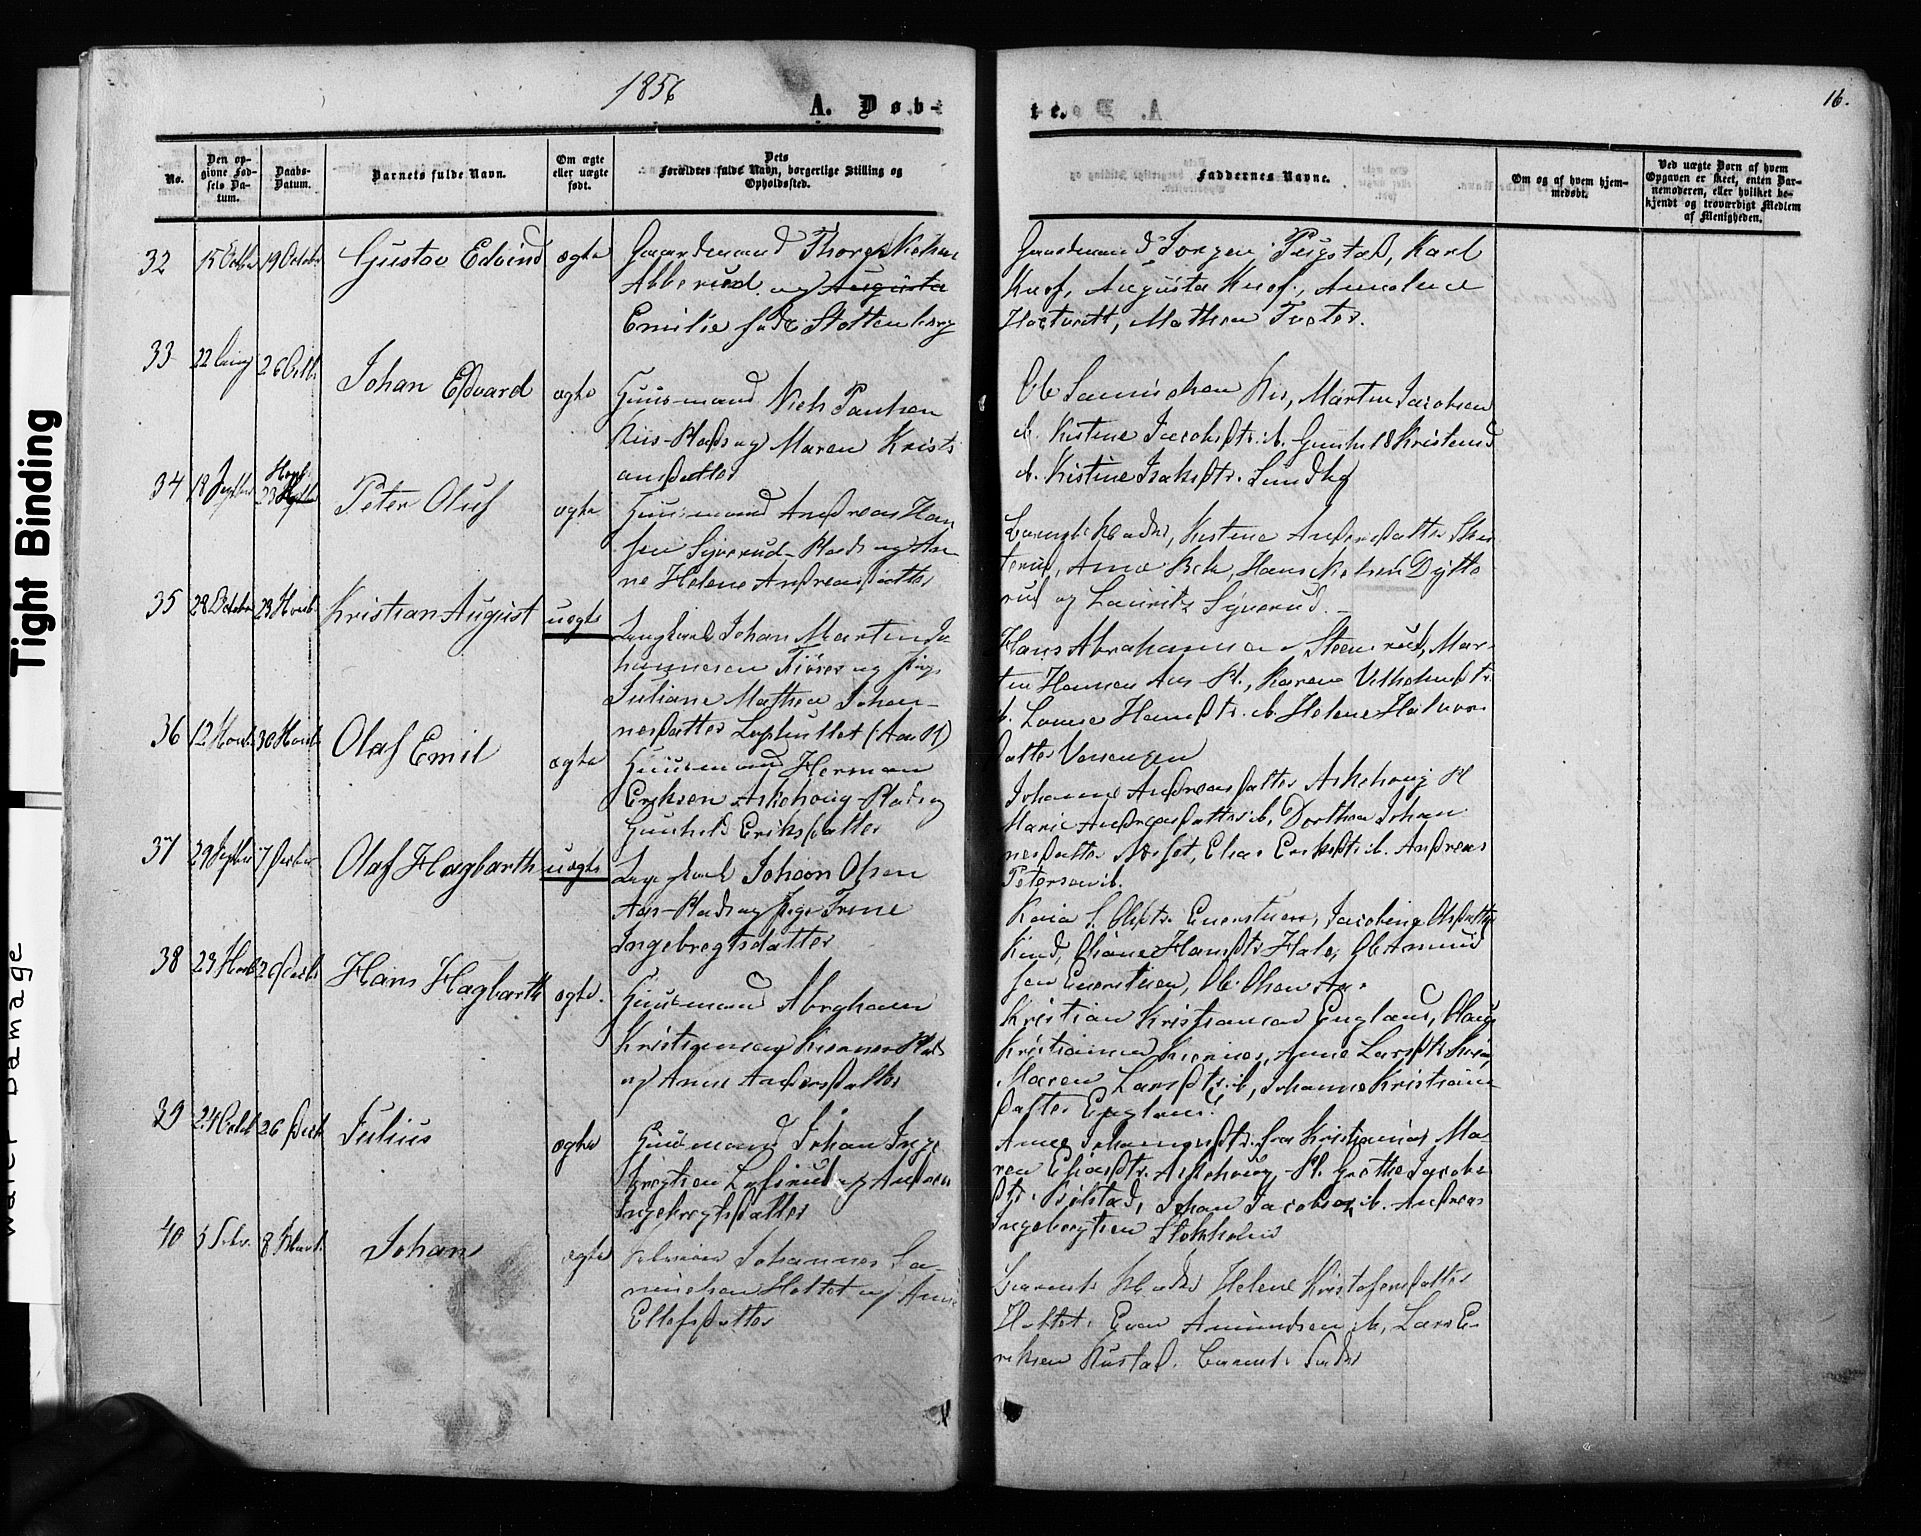 Tight Binding
Water Damage
1856
A. Døb-
te.
16.
No.
Den opgivne Fødsels Datum.
Daabs-Datum.
Barnets fulde Navn.
Om ægte eller uægte født.
Dets Forældres fulde Navn, borgerlige Stilling og Opholdssted.
Faddernes Navne.
Om og af hvem hjemmedøbt.
Ved uægte Born af hvem Opgaven er skeet, enten Barnemoderen, eller hvilket bekjendt og troværdigt Medlem af Menigheden.
32 15 Octbr 19 Octobr Gustav Edvind ægte Gaardmand Thorer Nielsen
Abberud og Augusta
Emilie født Stoltenberg
Gaardmand Jørgen Pugstad, Karl
Knof, Augusta Knof, Annalene
Hoetvedt, Mathea Tveter.
33 22 Aug 26 Octbr Johan Edvard ægte Huusmand Niels Paulsen
Riis-Plads og Maren Kristi
ansdatter
Ole Samuelsen Riis, Martin Jacobsen
ib. Kistine Jacobsdtr. ib. Gunhild Kristens
ib. Kistine Isaksdtr. Lundby
34 18 Septbr 23 Novb Peter Oluf ægte Huusmand Andreas Han
sen Syverud-Plads og An
ne Helene Andreasdatter
Barnets Moder, Kistine Andersdatter
Anne Bek, Hans Nielsen Dytte
rud og Lauritz Syverud.
35 28 October 23 Novb Kristian August uægte Ungkarl Johan Martin Jo
hannesen og Pige
Juliane Mathea Johan-
nesdatter (Aas Pl)
Hans Abrahamsen Steenrud, Mar-
tin Hansen Aas Pl., Karen Vilhelmsdtr.
ib. Lovise Hansdtr. ib. Helene Halvors
datter
36 12 Novb 30 Novb Olaf Emil ægte Huusmand Herman
Eriksen Askehoug-Plads og
Gunhild Eriksdatter
Johanne Andreasdatter Askehoug Pl
Marie Andreasdatter ib, Dorthea Johan
nesdatter Næset, Elias Eriksdtr. ib. Andreas
Petersen ib.
37 29 Septbr 7 Decbr Olaf Hagbarth uægte Ungkarl Johan Olsen
Aas-Plads og Pige Trine
Ingebregtsdatter
Karia S. Olsdtr. Enerstuen, Jacobine Olsdatter
Kind, Oliane Hansdtr Hole, Ole Amund
sen Enerstuen, Ole Olsen Aas
38 23 Novb 26 Decbr Hans Hagbarth ægte. Huusmand Abraham
Kristiansen Kjernes Plads
og Anne Andersdatter
Kristian Kristiansen England, Olaug
Kristiansen Kjernes, Anne Larsdtr
Maren Larsdtr. ib, Johanne Kristians
datter England.
39 24 Octbr 26 Decbr Julius ægte Huusmand Johan Inge
bregtsen Lofsrud og Andrea
Ingebregtsdatter
Anne Johannesdtr. fra Kristiania, Ma-
ren Eliasdtr. Askehoug-Pl. Grethe Jacobs
dtr. Bølstad, Johan Jacobsen ib. Andreas
Ingebregtsen Stokholm
40 5 Febr. 8 Johan ægte Selveier Johannes Sa-
muelsen Holtet og Anne
Ellefsdatter
Barnets Moder Helene Kristofersdatter
Holtet, Even Amundsen ib, Lars E-
riksen Rustad. Barnets Fader